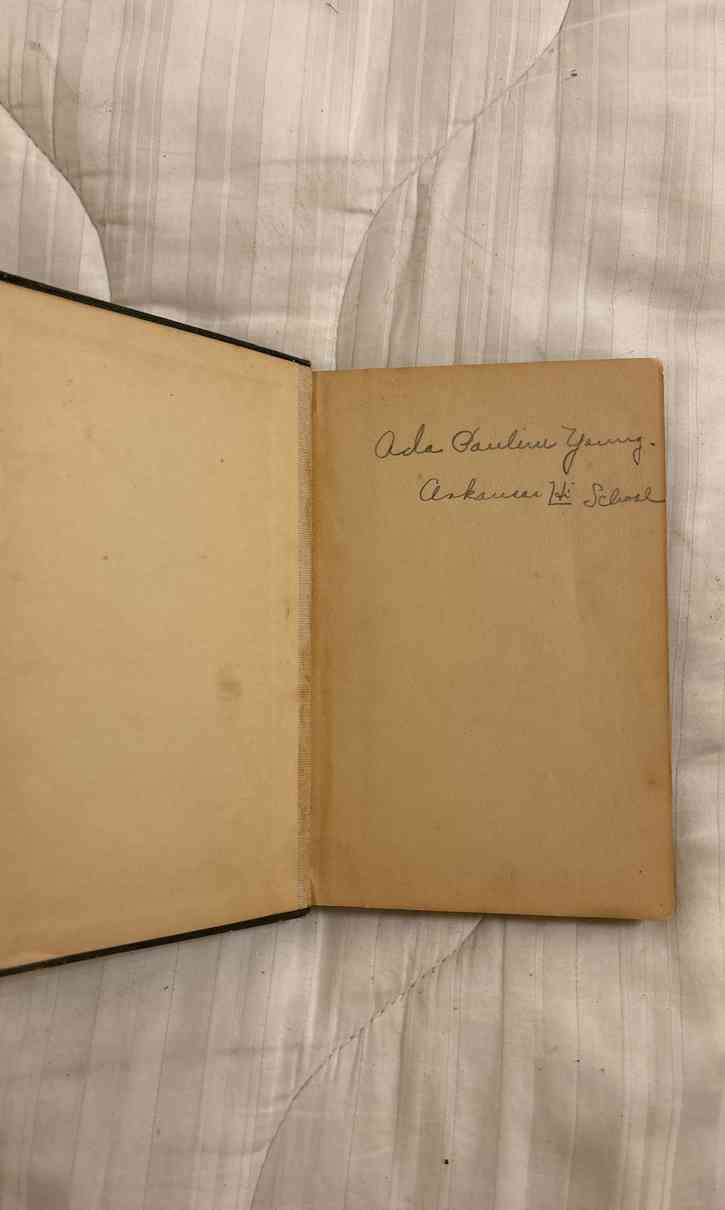 Ada Pauline Young.
Arkansas Hi School